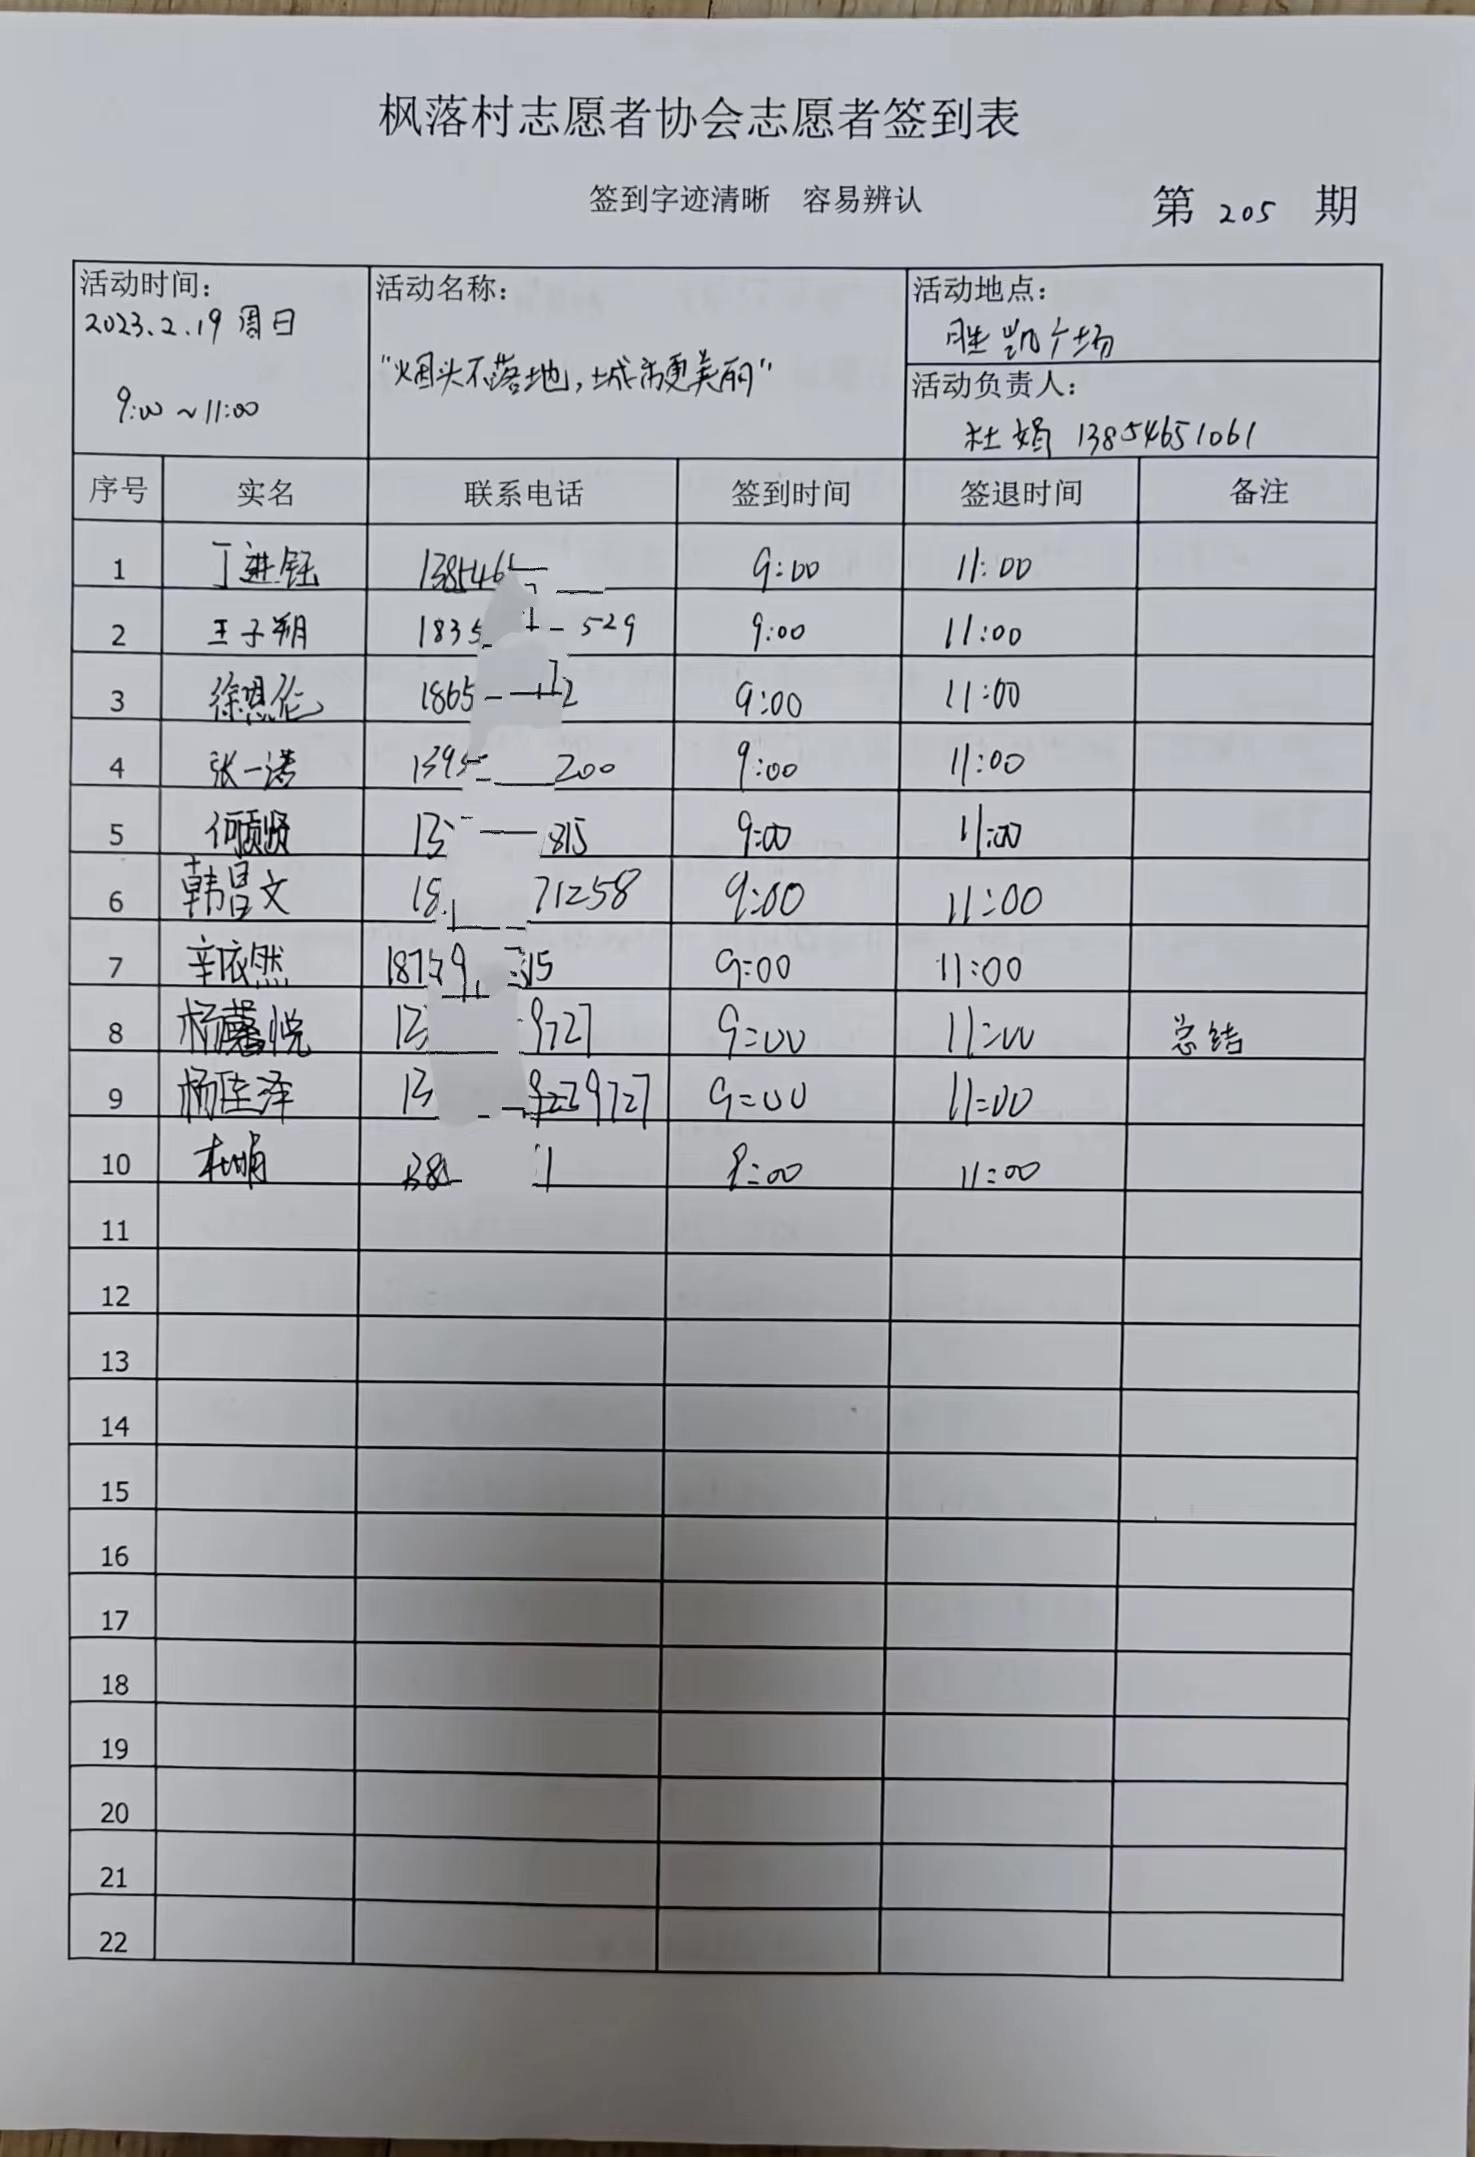 枫落村志愿者协会志愿者签到表
签到字迹清晰 容易辨认 第 205 期
活动时间:
2023.2.19 周日
9:00 ~ 11:00
活动名称:
"烟头不落地,城市更美丽"
活动地点:
胜凯广场
活动负责人:
杜娟 13854651061
序号 实名 联系电话 签到时间 签退时间 备注
1 丁进钰 138546 9:00 11:00
2 王子朔 1835 529 9:00 11:00
3 徐恩伦 1865 2 9:00 11:00
4 张一诺 1395 200 9:00 11:00
5 何贤 13 815 9:00 11:00
6 韩昌文 18 71258 9:00 11:00
7 辛依然 187 9 15 9:00 11:00
8 杨馨悦 13 9727 9:00 11:00 总结
9 杨佳泽 13 9727 9:00 11:00
10 杜娟 138 1 9:00 11:00
11
12
13
14
15
16
17
18
19
20
21
22